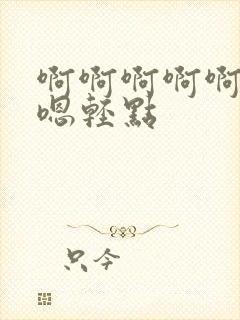 啊啊啊啊啊
嗯輕點
只今